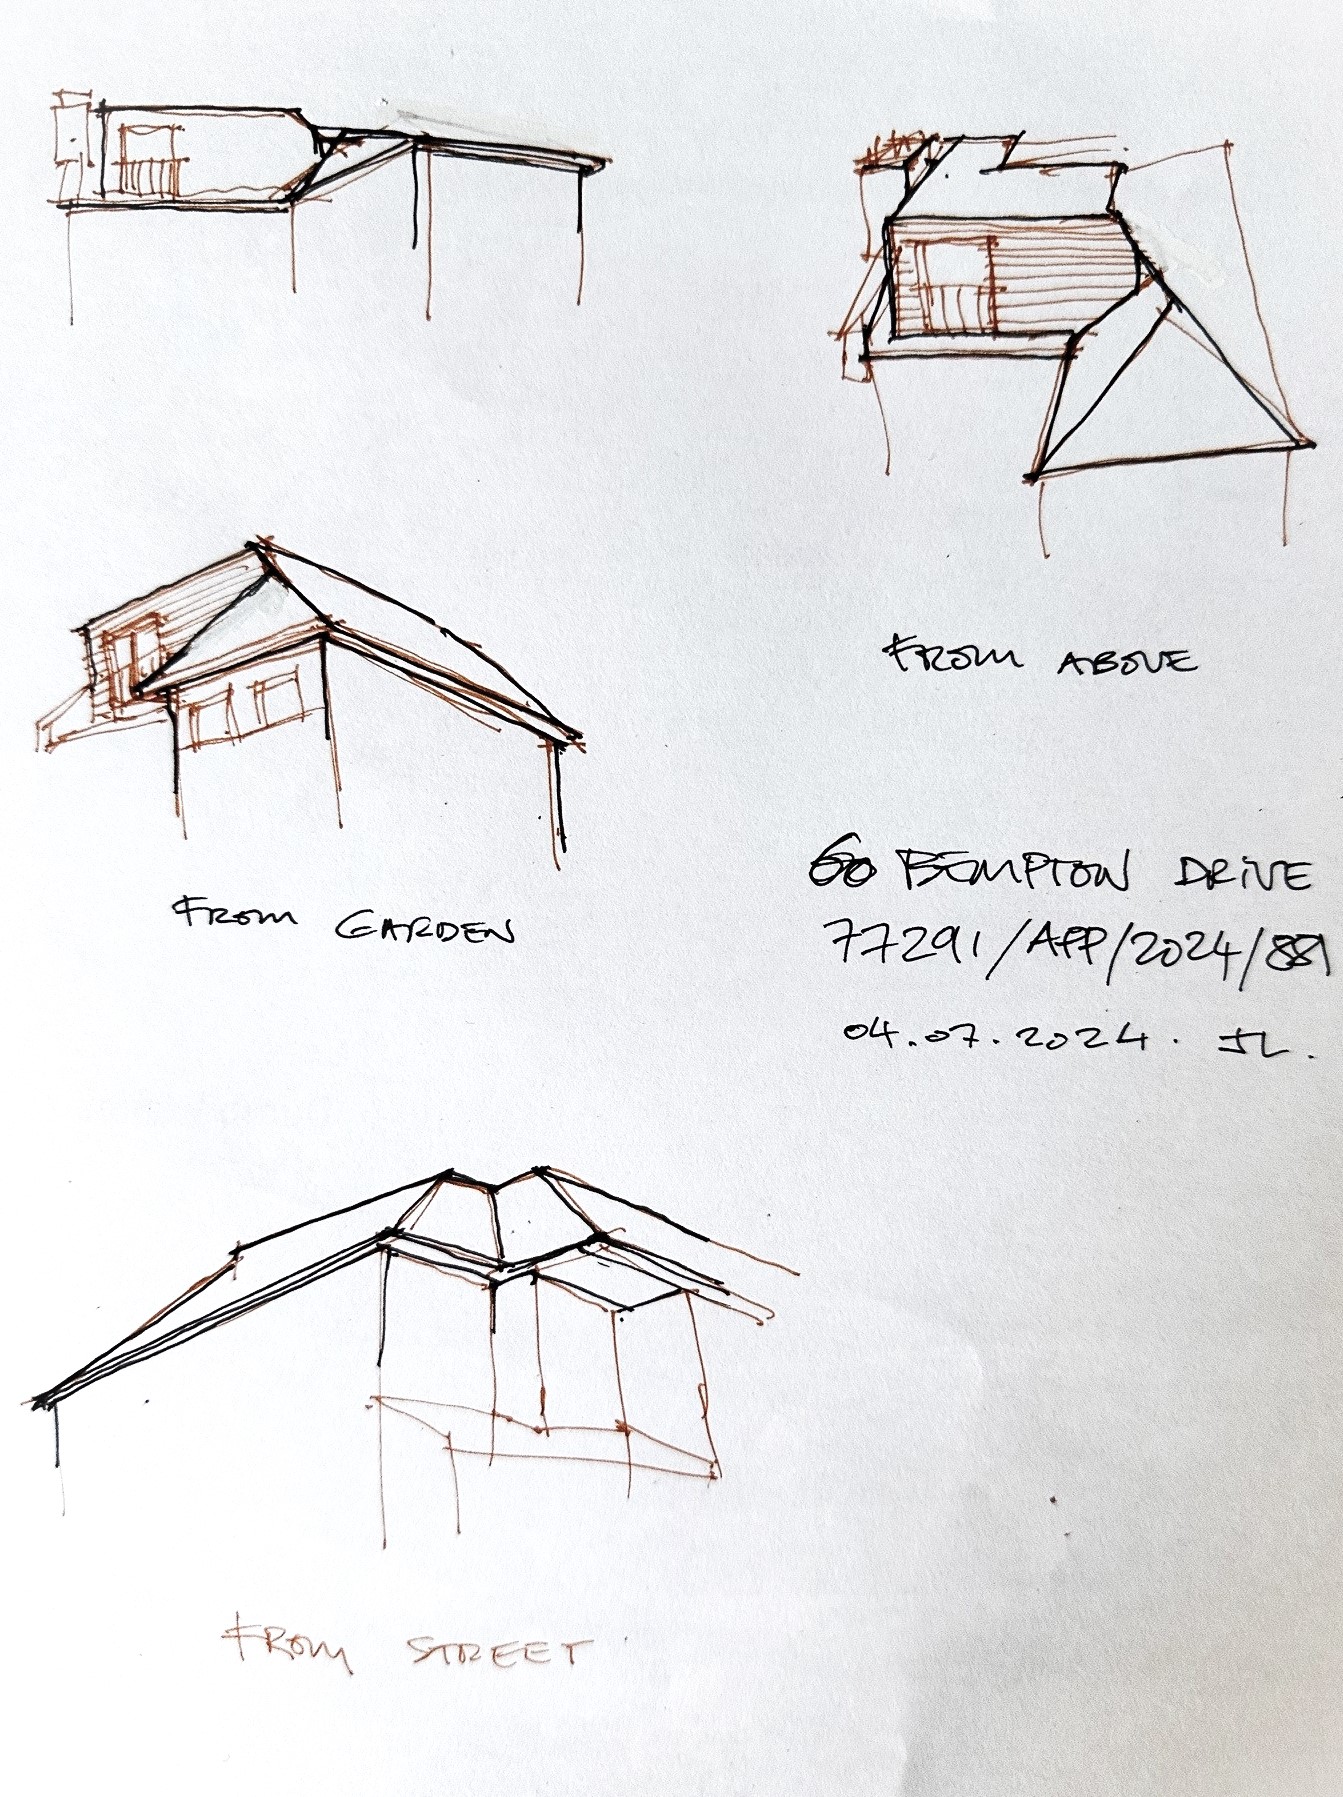 FROM ABOVE
FROM GARDEN
60 BEMPTON DRIVE
77291/APP/2024/889
04.07.2024. JL.
FROM STREET